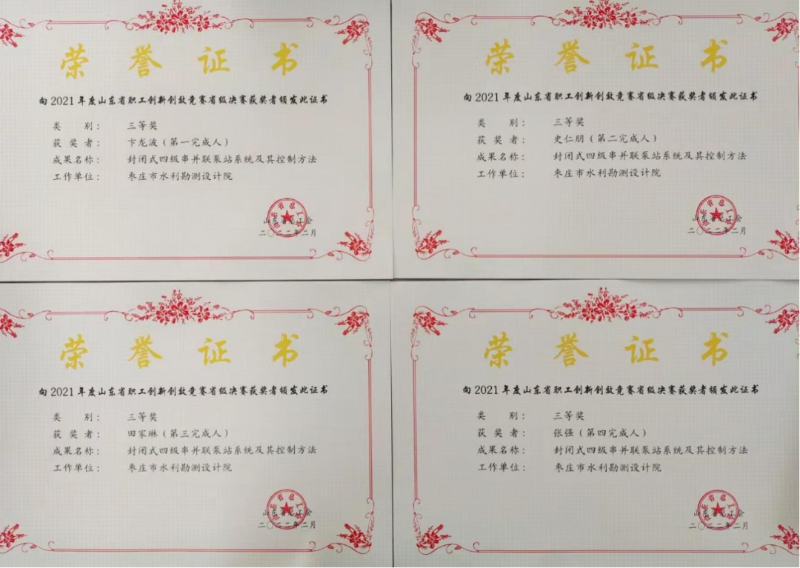 荣誉证书
向2021年度山东省职工创新创效竞赛省级决赛获奖者颁发此证书
类 别： 三等奖
获 奖 者： 卞龙波（第一完成人）
成果名称： 封闭式四级串并联泵站系统及其控制方法
工作单位： 枣庄市水利勘测设计院
二〇二二年二月
荣誉证书
向2021年度山东省职工创新创效竞赛省级决赛获奖者颁发此证书
类 别： 三等奖
获 奖 者： 史仁朋（第二完成人）
成果名称： 封闭式四级串并联泵站系统及其控制方法
工作单位： 枣庄市水利勘测设计院
二〇二二年二月
荣誉证书
向2021年度山东省职工创新创效竞赛省级决赛获奖者颁发此证书
类 别： 三等奖
获 奖 者： 田家琳（第三完成人）
成果名称： 封闭式四级串并联泵站系统及其控制方法
工作单位： 枣庄市水利勘测设计院
二〇二二年二月
荣誉证书
向2021年度山东省职工创新创效竞赛省级决赛获奖者颁发此证书
类 别： 三等奖
获 奖 者： 张强（第四完成人）
成果名称： 封闭式四级串并联泵站系统及其控制方法
工作单位： 枣庄市水利勘测设计院
二〇二二年二月